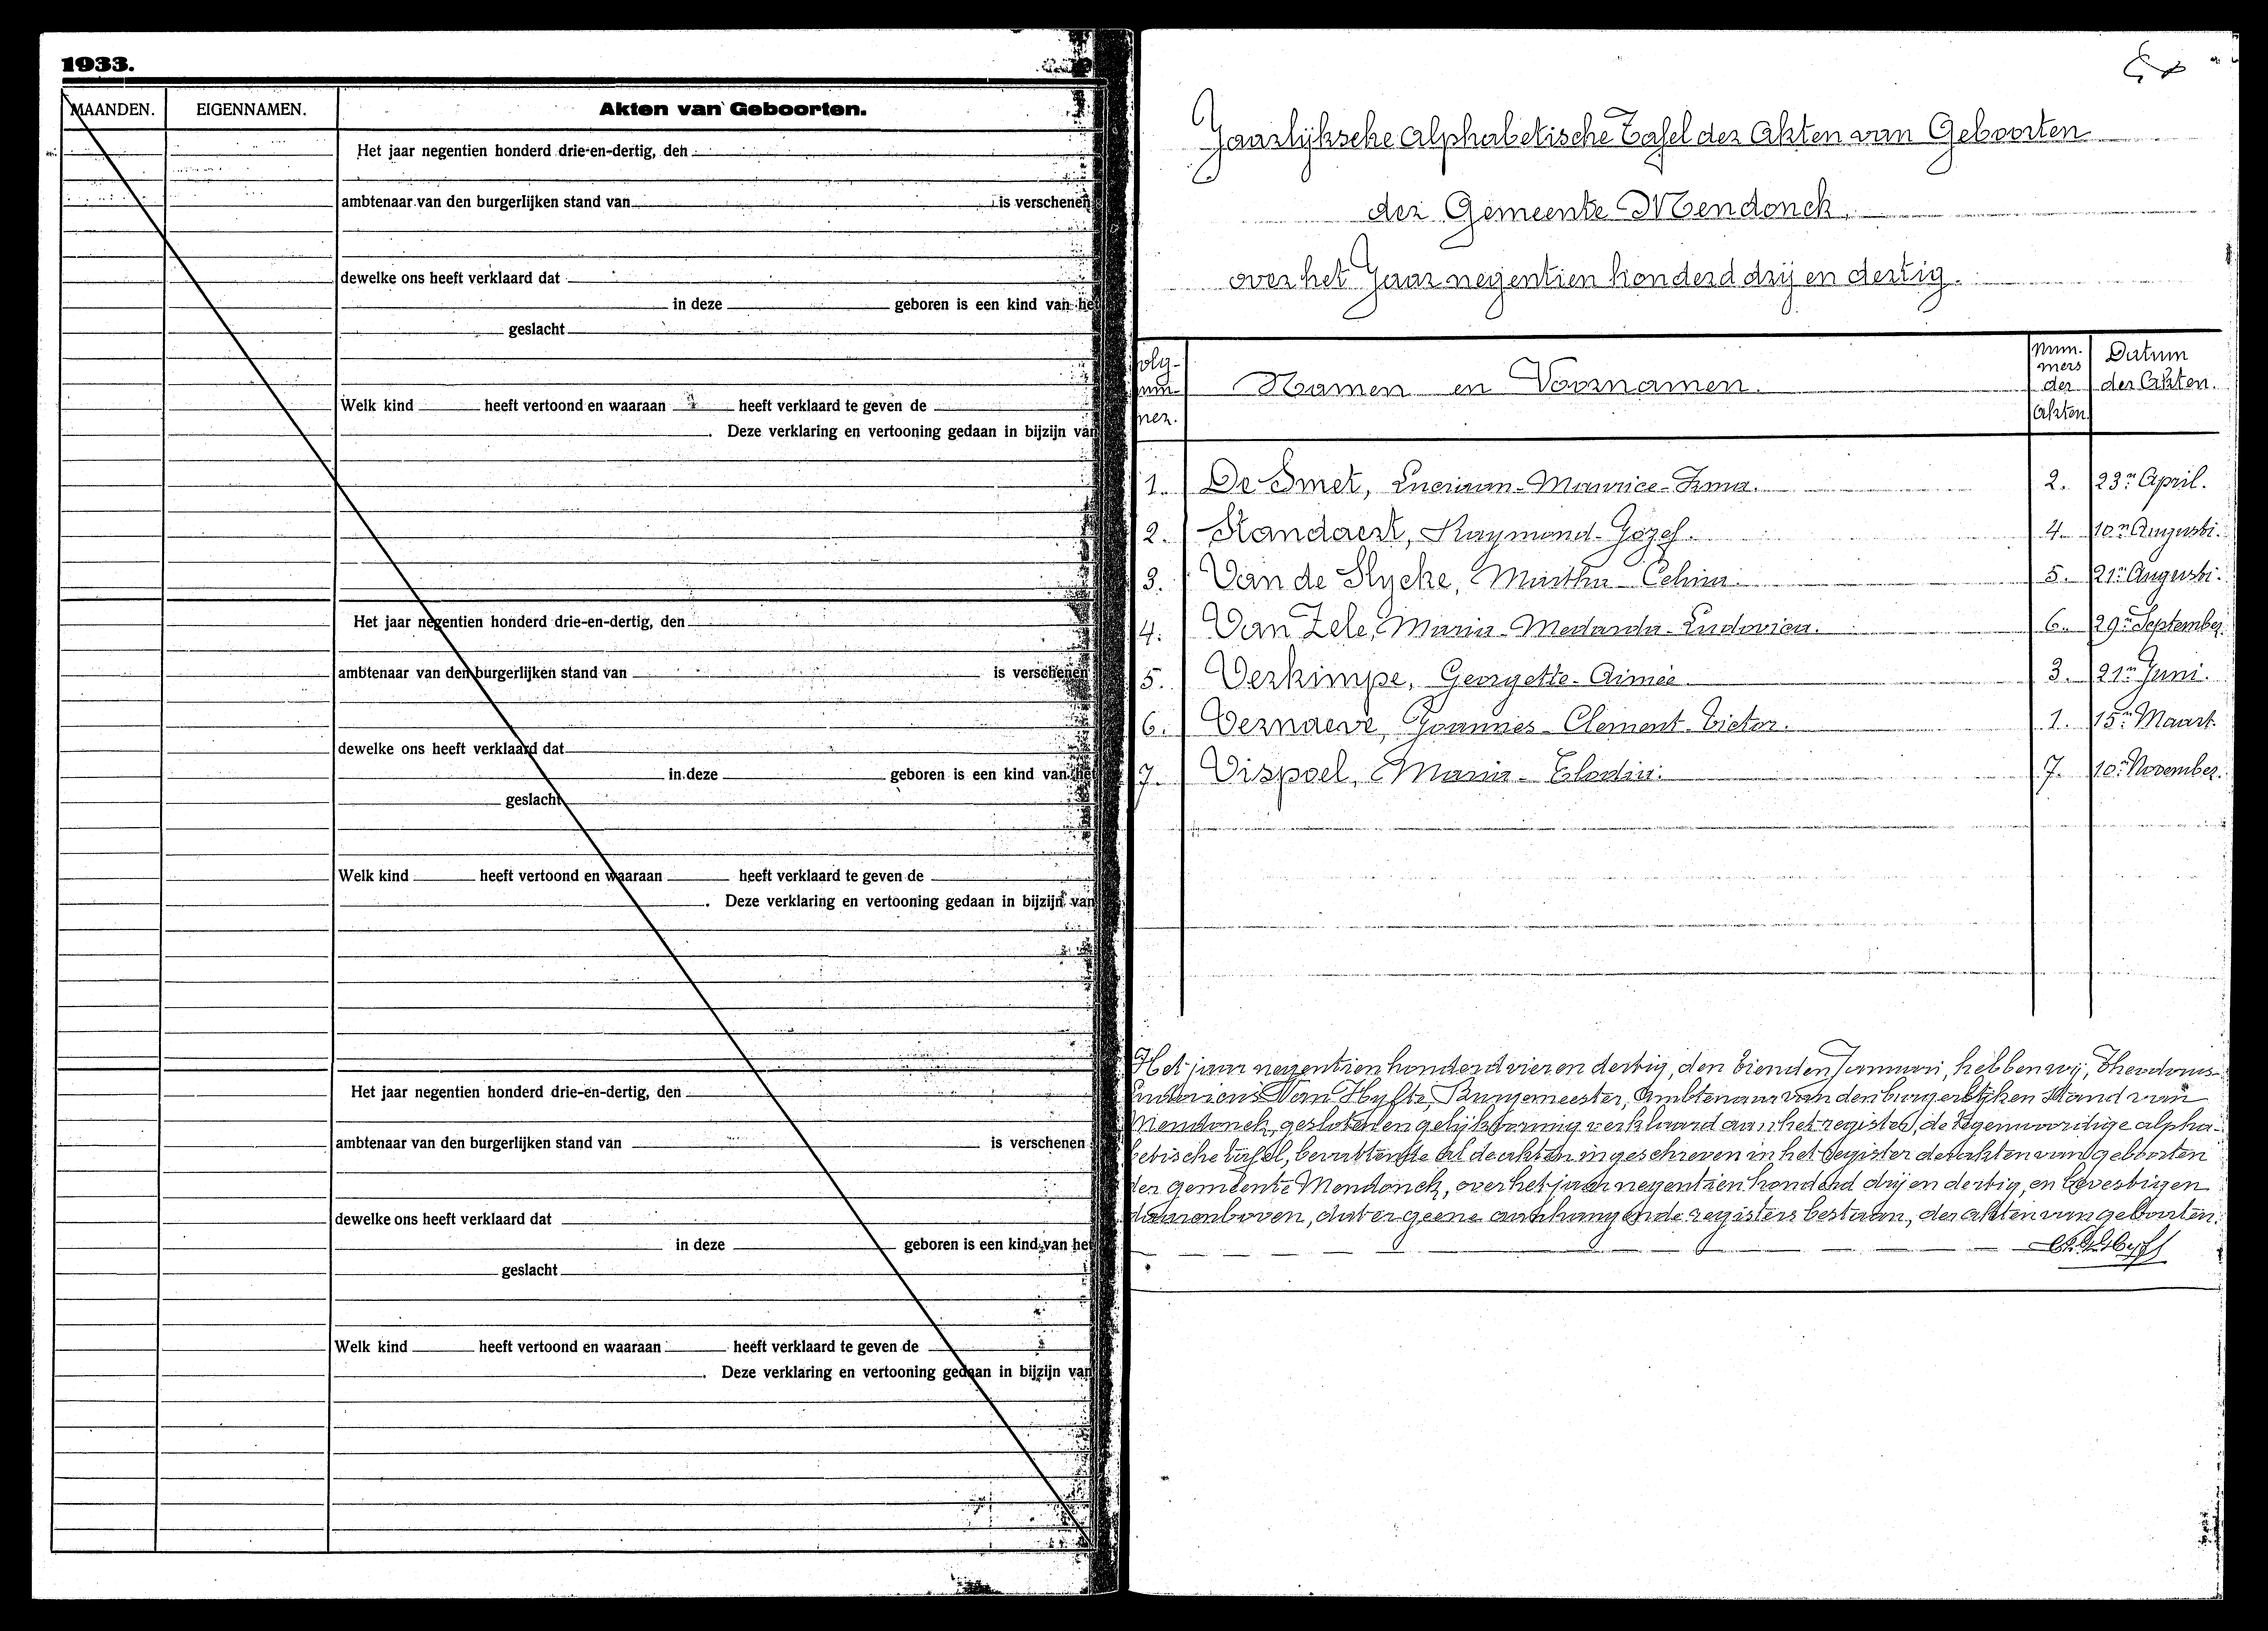 1933.
MAANDEN. EIGENNAMEN. Akten van Geboorten.
Het jaar negentien honderd drie-en-dertig, den
ambtenaar van den burgerlijken stand van is verschenen
dewelke ons heeft verklaard dat
in deze geboren is een kind van het
geslacht
Welk kind heeft vertoond en waaraan heeft verklaard te geven de
. Deze verklaring en vertooning gedaan in bijzijn van
Het jaar negentien honderd drie-en-dertig, den
ambtenaar van den burgerlijken stand van is verschenen
dewelke ons heeft verklaard dat
in deze geboren is een kind van het
geslacht
Welk kind heeft vertoond en waaraan heeft verklaard te geven de
. Deze verklaring en vertooning gedaan in bijzijn van
Het jaar negentien honderd drie-en-dertig, den
ambtenaar van den burgerlijken stand van is verschenen
dewelke ons heeft verklaard dat
in deze geboren is een kind van het
geslacht
Welk kind heeft vertoond en waaraan heeft verklaard te geven de
. Deze verklaring en vertooning gedaan in bijzijn van
Jaarlijksche Alphabetische Tafel der Akten van Geboorten
der Gemeente Mendonck,
over het Jaar negentien honderd drij en dertig.
Volg-num-mer. Namen en Voornamen. Num-mers der Akten. Datum der Akten.
1. De Smet, Luciaan-Maurice-Irma. 2. 23n April.
2. Standaert, Raymond-Jozef. 4. 10n Augusti.
3. Van de Slycke, Martha-Celina. 5. 21n Augusti.
4. Van Zele, Maria-Medarda-Ludovica. 6. 29n September.
5. Verkimpe, Georgette-Aimée 3. 21n Juni.
6. Vernaeve, Joannes-Clement-Victor. 1. 15n Maart.
7. Vispoel, Maria-Elodia. 7. 10n November.
Het jaar negentien honderd vier en dertig, den tienden Januari, hebben wij, Theodorus
Ludovicus Van Hyfte, Burgemeester, Ambtenaar van den burgerlijken stand van
Mendonck, gesloten en gelijkvormig verklaard aan het register, de tegenwoordige alpha-
betische tafel, bevattende al de akten ingeschreven in het register der akten van geboorten
der gemeente Mendonck, over het jaar negentien honderd drij en dertig, en bevestigen
daarenboven, dat er geene aanhangende registers bestaan, der akten van geboorten.